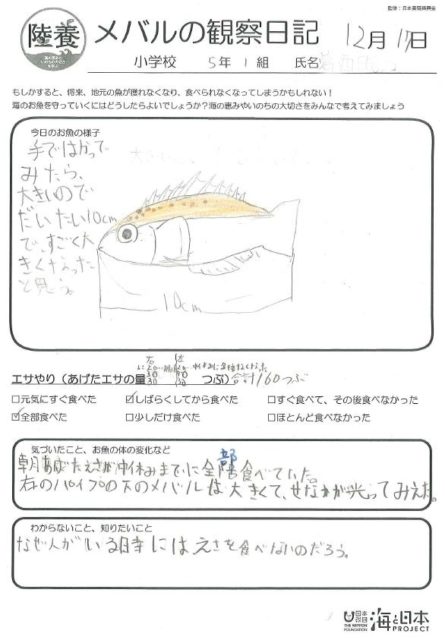 監修：日本養殖振興会
陸養
メバルの観察日記
12月17日
小学校 5年 1組 氏名
もしかすると、将来、地元の魚が獲れなくなり、食べられなくなってしまうかもしれない！
海のお魚を守っていくにはどうしたらよいでしょうか？海の恵みやいのちの大切さをみんなで考えてみましょう
今日のお魚の様子
手ではかって
みたら、
大きいので
だいたい10cm
で、すごく大
きくなった
と思う。
10cm
エサやり（あげたエサの量 つぶ）合計160つぶ
右 左
□元気にすぐ食べた ☑しばらくしてから食べた □すぐ食べて、その後食べなかった
☑全部食べた □少しだけ食べた □ほとんど食べなかった
気づいたこと、お魚の体の変化など
朝あげたえさが中休みまでに全部食べていた。
右のパイプの下のメバルは大きくて、せなかが光ってみえた。
わからないこと、知りたいこと
なぜ人がいる時にはえさを食べないのだろう。
日本財団
THE NIPPON
FOUNDATION
海と日本
PROJECT